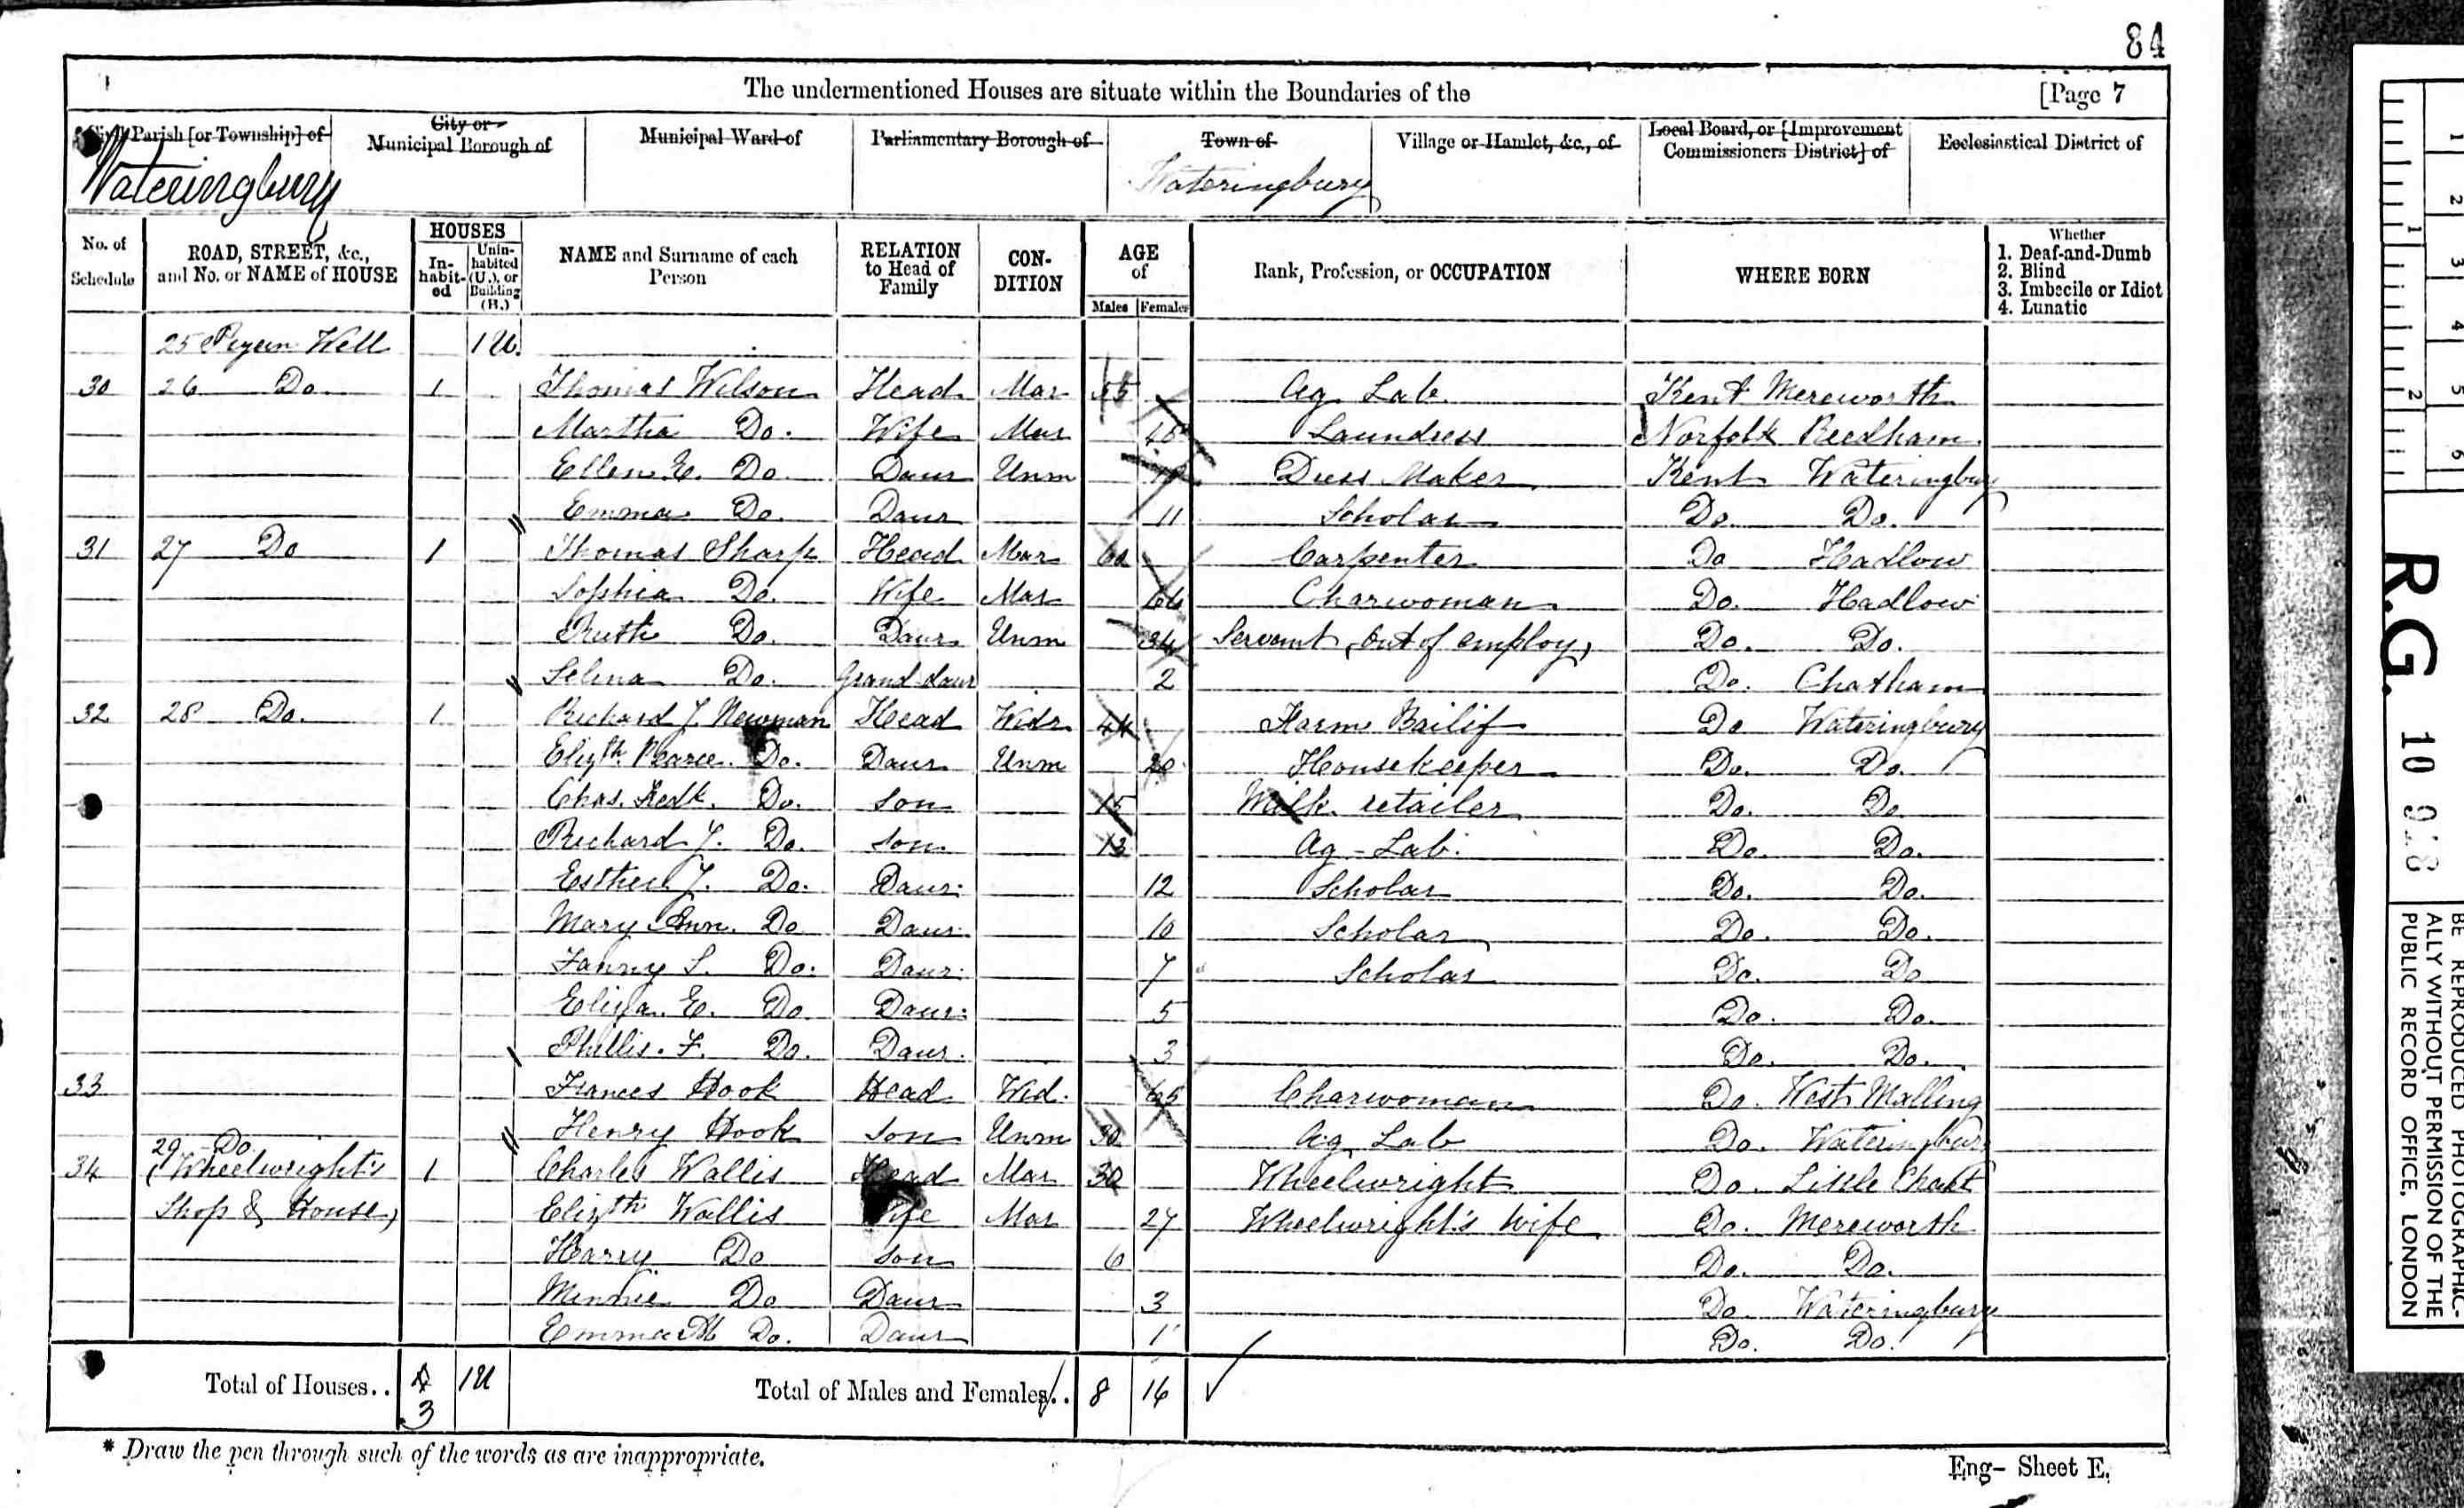 84
The undermentioned Houses are situate within the Boundaries of the [Page 7
Civil Parish [or Township] of City or Municipal Borough of Municipal Ward of Parliamentary Borough of Town of Village or Hamlet, &c., of Local Board, or [Improvement Commissioners District] of Ecclesiastical District of
Wateringbury Wateringbury
No. of Schedule ROAD, STREET, &c., and No. or NAME of HOUSE HOUSES In-habit-ed Unin-habited (U.), or Building (B.) NAME and Surname of each Person RELATION to Head of Family CON-DITION AGE of Males Females Rank, Profession, or OCCUPATION WHERE BORN Whether 1. Deaf-and-Dumb 2. Blind 3. Imbecile or Idiot 4. Lunatic
25 Well 1 U.
30 26 Do. 1 Thomas Wilson Head Mar 55 Ag. Lab. Kent Mereworth
Martha Do. Wife Mar Laundress Norfolk Reedham
Ellen E. Do. Daur Unm Dress Maker Kent Wateringbury
Emma Do. Daur 11 Scholar Do. Do.
31 27 Do 1 Thomas Sharp Head Mar Carpenter Do Hadlow
Sophia Do. Wife Mar 64 Charwoman Do. Hadlow
Ruth Do. Daur Unm 34 Servant, out of employ, Do. Do.
Selina Do. Grand-daur 2 Do. Chatham
32 28 Do. 1 Richard J. Newman Head Widr 44 Farm Bailif Do Wateringbury
Elizth. Pearce Do. Daur Unm 20 Housekeeper Do. Do.
Chas. Fredk. Do. Son 15 Milk retailer Do. Do.
Richard J. Do. Son 13 Ag-Lab. Do. Do.
Esther J. Do. Daur. 12 Scholar Do. Do.
Mary Ann. Do Daur. 10 Scholar Do. Do.
Fanny S. Do. Daur. 7 Scholar Do. Do
Eliza. E. Do. Daur. 5 Do. Do.
Phillis. F. Do. Daur. 3 Do. Do.
33 Frances Hook Head Wid. 65 Charwoman Do. West Malling
Henry Hook Son Unm 30 Ag. Lab Do. Wateringbury
29 Do
34 (Wheelwright's 1 Charles Wallis Head Mar 30 Wheelwright Do. Little Chart
Shop & House) Elizth Wallis Wife Mar 27 Wheelwright's wife Do. Mereworth
Harry Do Son 6 Do. Do.
Minnie Do Daur 3 Do. Wateringbury
Emma M Do. Daur 1 Do. Do.
Total of Houses.. 4 3 1U Total of Males and Females.. 8 16
* Draw the pen through such of the words as are inappropriate.
Eng- Sheet E.
1 2 3 4 5 6
1 2
R.G. 10
BE REPRODUCED PHOTOGRAPHIC-
ALLY WITHOUT PERMISSION OF THE
PUBLIC RECORD OFFICE, LONDON